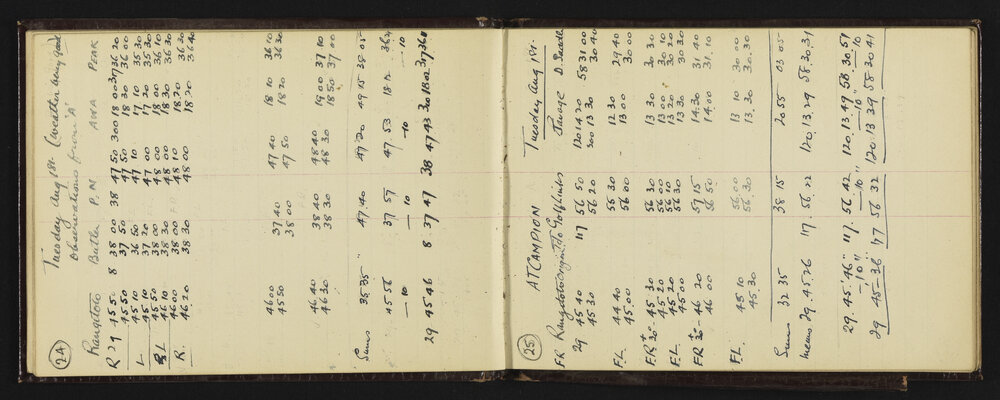 24
Tuesday Aug 1st. (weather very good
Observations from 'A'
Rangitoto Butler P.M AWA PEAK
R 29 45 50 8 38 00 38 47 50 300 18 00 317 36 20
45 50 37 50 47 50 18 30 36 00
L 45 10 36 50 47 10 17 10 35 30
45 10 37 20 47 00 17 20 35 30
45 50 38 00 48 00 18 00 36 10
L 46 10 38 30 48 00 18 30 36 30
46 00 38 00 48 10 18 20 36 30
R. 46 20 38 30 48 00 18 20 36 40
46 00 37 40 47 40 18 10 36 10
45 50 38 00 47 50 18 20 36 30
46 40 38 40 48 40 19 00 37 10
46 30 38 30 48 30 18 50 37 00
Sums 47.40 47 20 49 15 38 05
45 56 37 57 47 53
—10 —10 —10 —10
29 45 46 8 37 47 38 47 43
25
AT CAMPION Tuesday Aug 1st.
FR Rangitoto Golflinks Savage D. Saddle
29 45 40 117 56 50 120 14 20 58 31 00
45 30 56 20 300 13 30 30 40
F.L 44 40 56 30 12 30 29 40
45 00 56 00 13 00 30 00
F.R+ 20" 45 30 56 30 13 30 30 30
45 20 56 00 13 00 30 10
F.L 45 20 56 10 13 20 30 20
45 00 56 30 13 30 30 30
F.R+ 20" 46 20 57 15 14 30 31 40
46 00 56 50 14 00 31 10
F.L. 45 10 56 00 13 10 30 00
45 30 56 30 13 30 30 30
Sums 32 35 38 15 20 55 03 05
means 29 45 26 117. 56 22 120. 13 29 58 30 31
29. 45. 46" 117. 56 42 120. 13. 49 58 30. 51
—10" —10" —10" —10
29 45—36 77 56 32 120 13 39 58 30 41